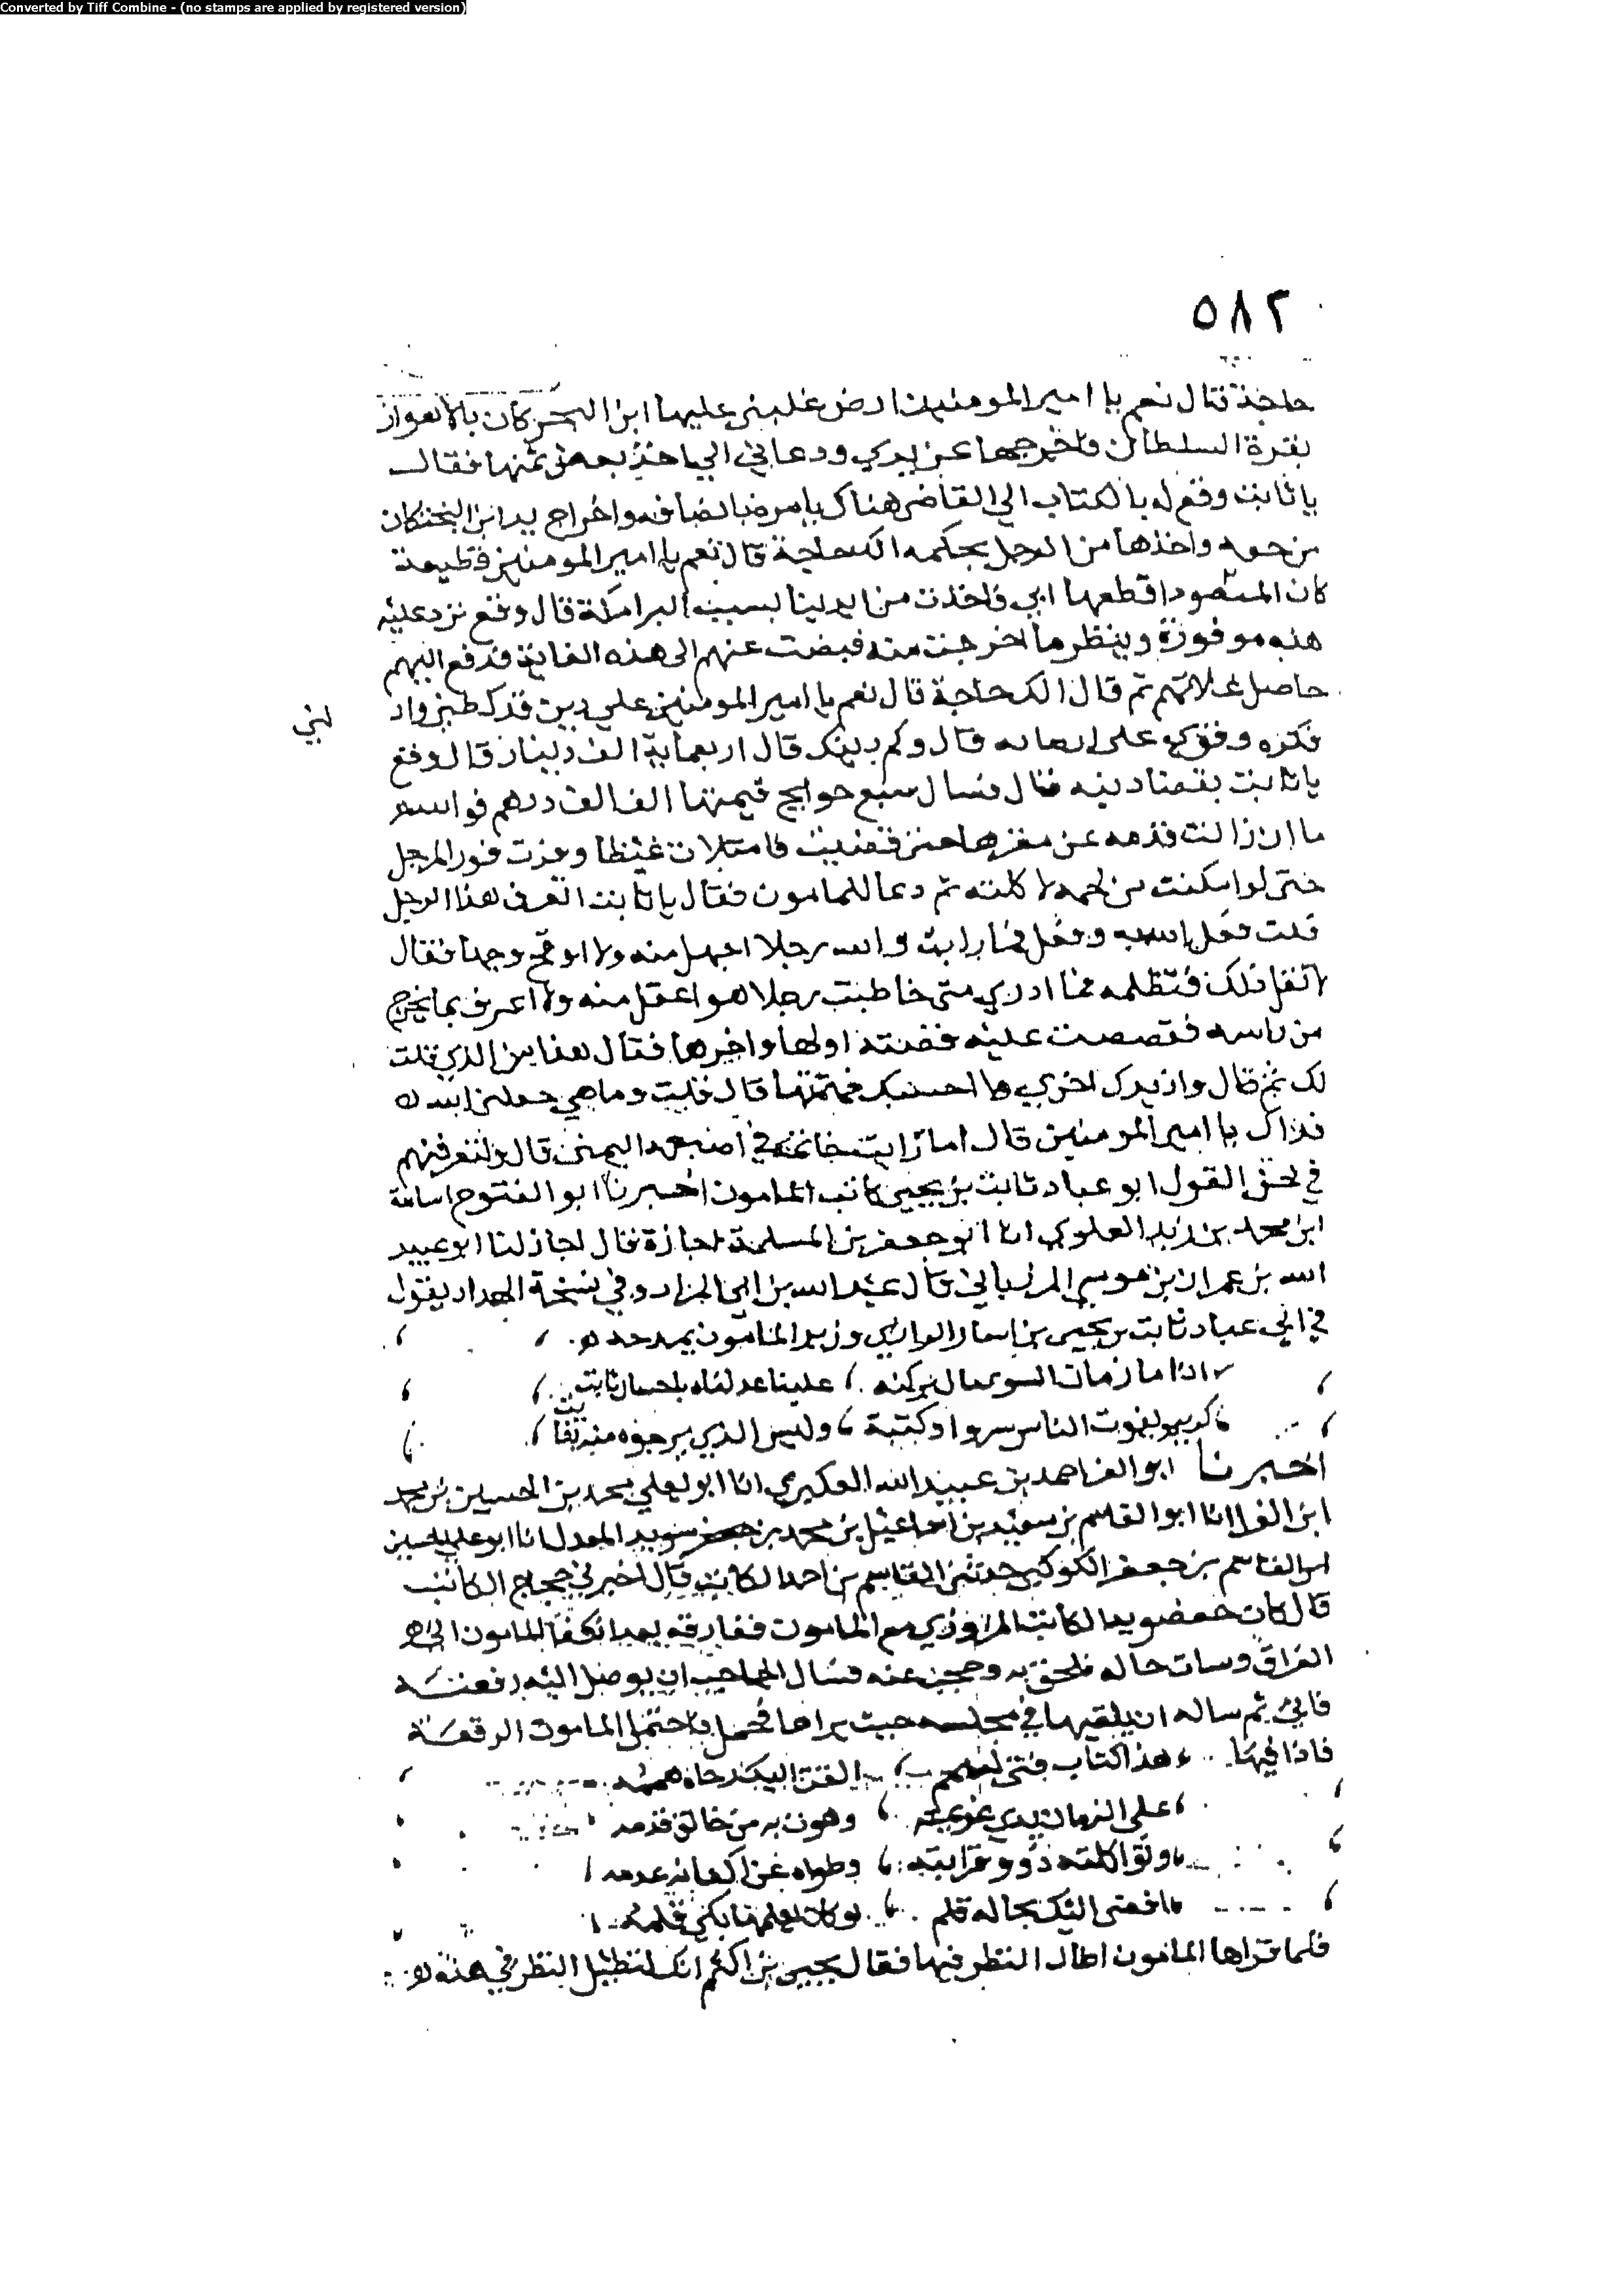 Converted by Tiff Combine - (no stamps are applied by registered version)
٥٨٢
حاجة قال نعم يا امير المومنين ارض غلبني عليها ابن البختكان بالاهواز
بقدرة السلطان واخرجها عن يدي ودعاني الي اخذ بعض ثمنها فقال
يا ثابت وقع له بالكتاب الي القاضي هناك يامره بانصافه واخراج يد ابن البختكان
من حقه واخذها من الرجل بحكمه الك حاجة قال نعم يا امير المومنين قطيعة
كان المنصور اقطعها ابي فاخذت من ايدينا بسبب البرامكة قال وقع ترد عليه
هذه موفورة وينظر ما اخرجت منه قبضت عنهم الى هذه الغاية فدفع اليهم
حاصل غلاتهم ثم قال الك حاجة قال نعم يا امير المومنين علي دين قد
لني
قال وكم دينك قال اربعماية الف دينار قال وقع
يا ثابت بقضا دينه قال فسال سبع حوايج قيمتها الف الف درهم فو الله
ما ان زالت قدمه عن مقرها حتى قضيت فامتلات غيظا وفرت فور المرجل
حتى لو امكنت من لحمه لاكلته ثم دعا للمامون فقال يا ثابت اتعرف هذا الرجل
قلت فعل الله به وفعل فما رايت والله رجلا اجهل منه ولا اوقح وجها فقال
لا تقل ذلك فتظلمه فما ادري متى خاطبت رجلا هو اعقل منه ولا اعرف بما يخرج
من راسه فقصصت عليه قصته اولها واخرها فقال هذا من الذي قلت
لك ثم قال وازيدك اخري ما احسبك فهمتها قال قلت وما هي جعلني الله
فداك يا امير المومنين قال اما رايت خاتمه في اصبعه اليمنى قال ولتعرفنهم
في لحن القول ابو عباد ثابت بن يحيى كاتب المامون اخبرنا ابو الفتوح اسامة
ابن محمد بن زيد العلوي انا ابو جعفر بن المسلمة اجازة قال اجاز لنا ابو عبيد
الله بن عمران بن موسى المرزباني قال عبد الله بن ابي وفي نسخة الحداد يقول
في ابي عباد ثابت بن يحيى بن يسار الرازي وزير المامون يمدحه
اذا ما زمان السو مال بركنه علينا عدلناه باحسان ثابت
كريم يفوت الناس سروا وكتبة وليس الذي يرجوه منه بفائت
اخبرنا ابو العز احمد بن عبيد الله العكبري انا ابو يعلى محمد بن الحسين بن محمد
ابن الفرا انا ابو القاسم بن سعيد بن اسماعيل بن محمد بن سويد المعدل انا ابو علي الحسين
ابن القاسم بن جعفر الكوكبي حدثني القاسم بن احمد الكاتب قال اخبرني حجاج الكاتب
قال كان الكاتب المروزي مع المامون ففارقه المامون الى
العراق وسات حاله فلحق به وحجب عنه فسال الحاجب ان يوصل اليه رقعته
فابى ثم ساله ان يلقيها في مجلسه حيث يراها ففعل فاحتمل المامون الرقعة
فاذا فيها هذا كتاب فتى له همم القت اليك رجاه هممه
على الزمان يدي عزيمته وهوت به من حالق قدمه
وتواكلته ذوو قرابته وطواه عن اكفائه عدمه
افضى اليك بحاله قلم لو كان يعلمها بكى قلمه
فلما قراها المامون اطال النظر فيها فقال يحيى بن اكثم انك لتطيل النظر في هذه